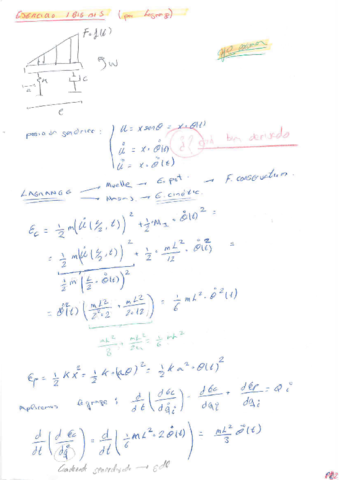 EJERCICIO 1 BIS M S (por Lagrange)
F = f(t)
W
K
C
a
L
posición genérica: u = x sen θ = x · θ(t)
u̇ = x · θ̇(t)
ü = x · θ̈(t)
LAGRANGE → Muelle → E. pot. → F. conservativa.
→ Masas → E. cinética.
Ec = 1/2 m (u̇(L/2, t))² + 1/2 · θ̇(t)² =
= 1/2 m (u̇(L/2, t))² + 1/2 · mL²/12 · θ̇(t)² =
1/2 m (L/2 · θ̇(t))²
= θ̇²(t) (mL²/2·2² + mL²/2·12) = 1/6 mL² · θ̇²(t)
mL²/8 + mL²/24 = 1/6 mL²
Ep = 1/2 K x² = 1/2 K · (aθ)² = 1/2 K a² · θ(t)²
Aplicamos Lagrange: d/dt (dEc/dq̇i) - dEc/dqi + dEp/dqi = Qi
d/dt (dEc/dq̇) = d/dt (1/6 mL² · 2θ̇(t)) = mL²/3 θ̈(t)